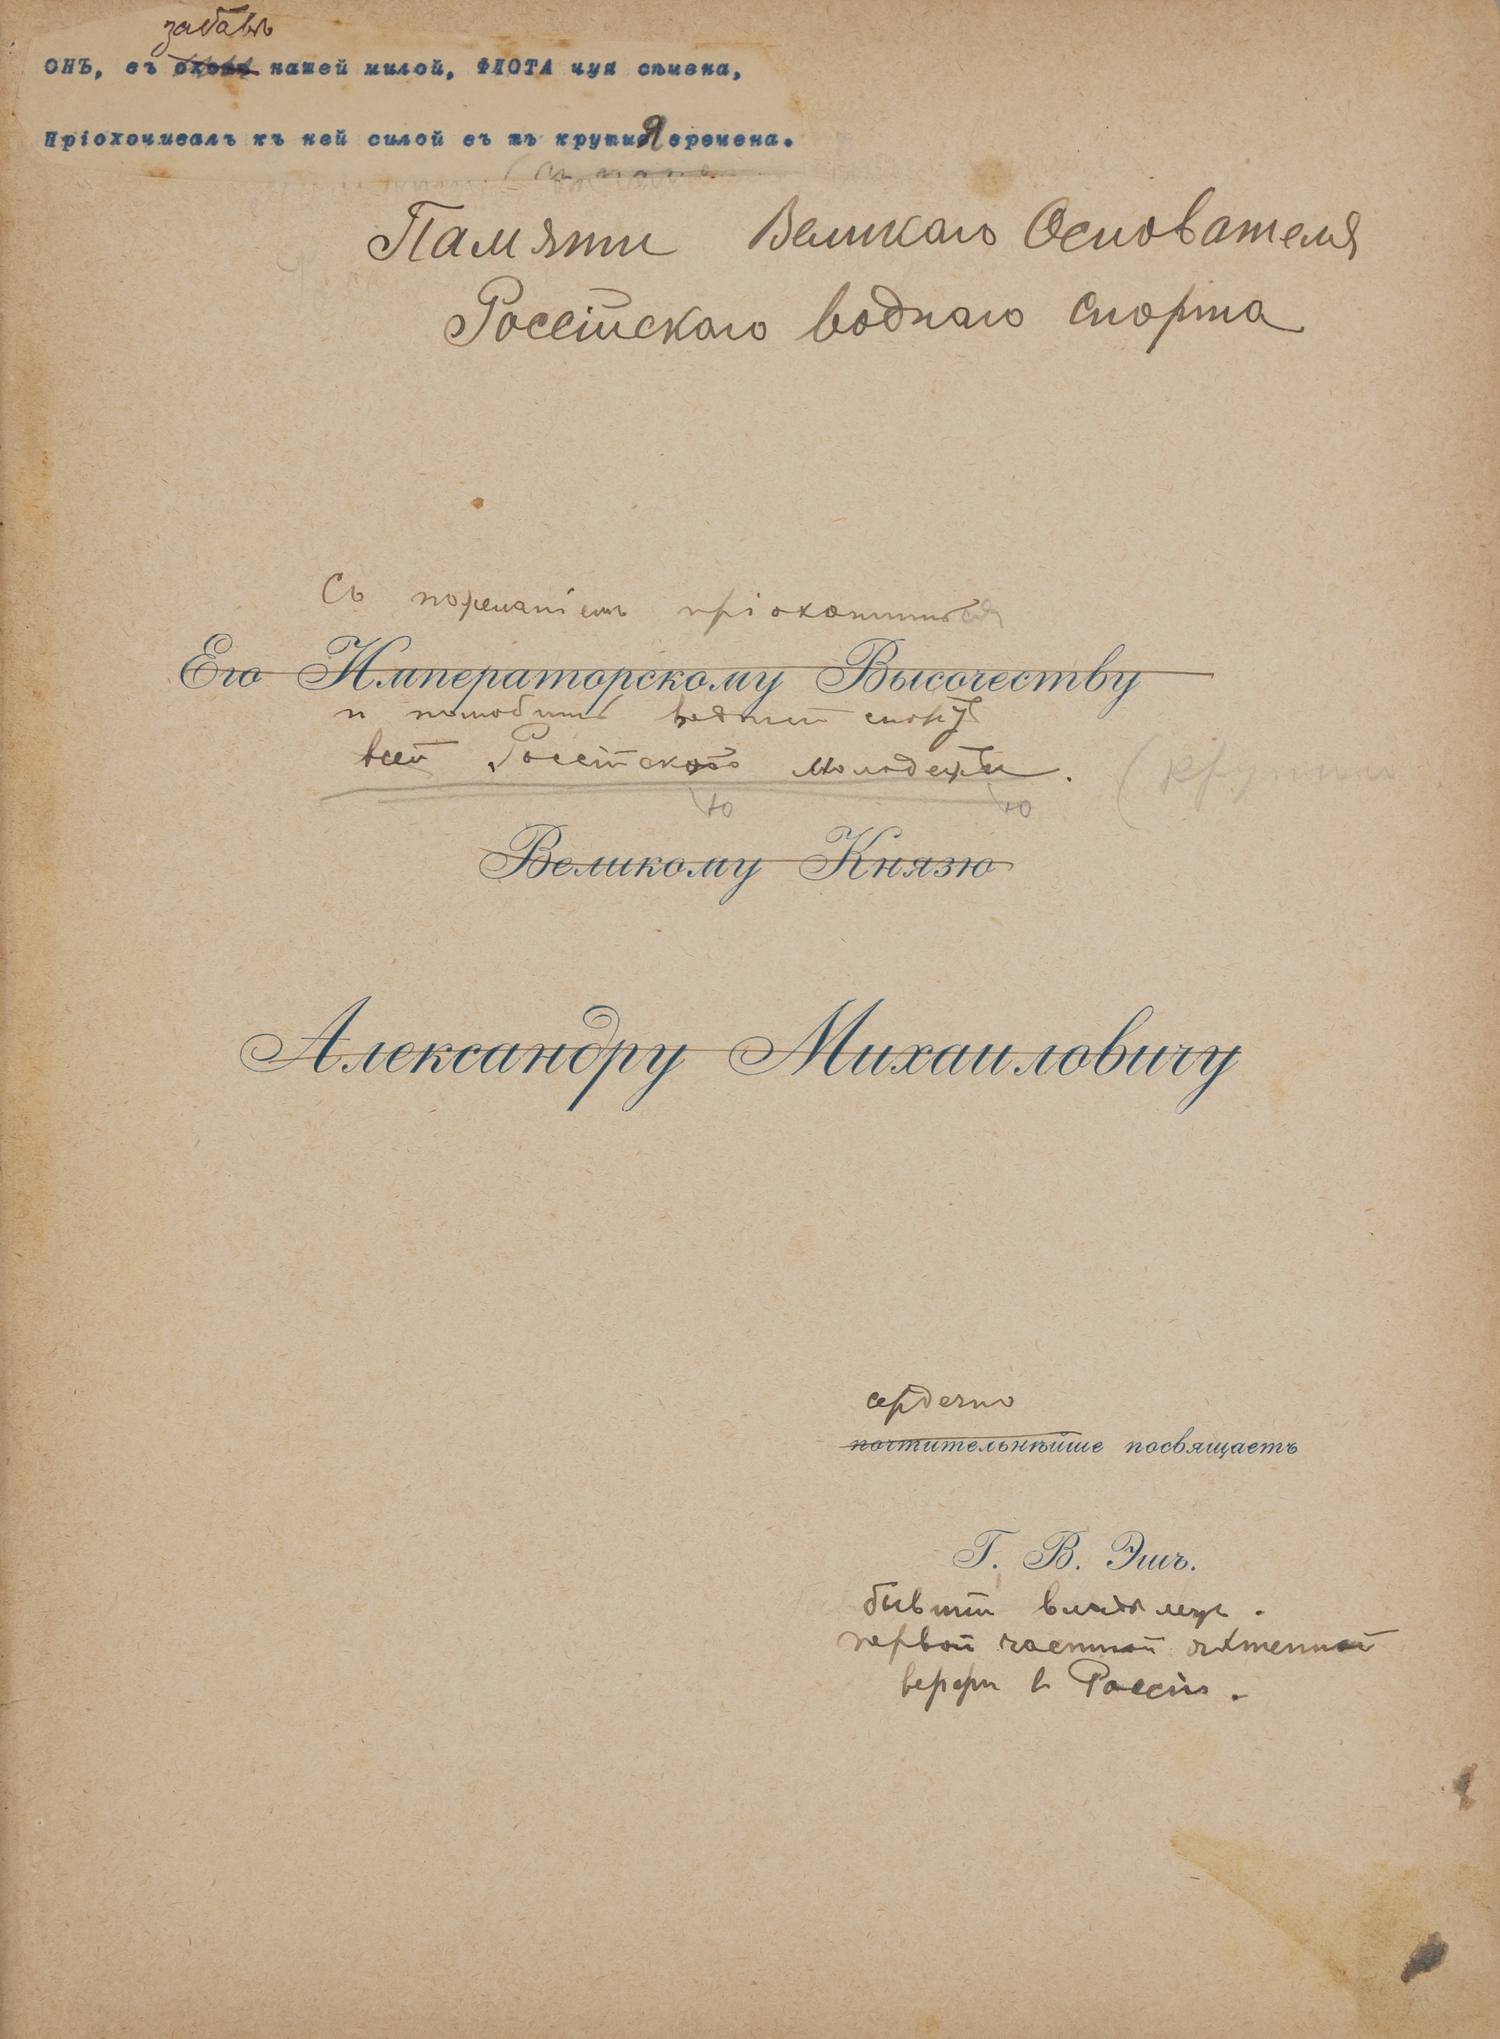 забавѣ
ОНЪ, въ охотѣ нашей милой, ФЛОТА чуя сѣмена,
Пріохочивалъ къ ней силой въ тѣ крутыя времена.
Памяти Великаго Основателя
Россійскаго воднаго спорта
Съ пожеланіемъ пріохотиться
Его Императорскому Высочеству
и полюбить водный спортъ
всей Россійской молодежи.
ю ю
Великому Князю
Александру Михаиловичу
сердечно
почтительнѣйше посвящаетъ
Г. В. Эшъ.
бывшій владѣлецъ
первой частной яхтенной
верфи в Россіи.